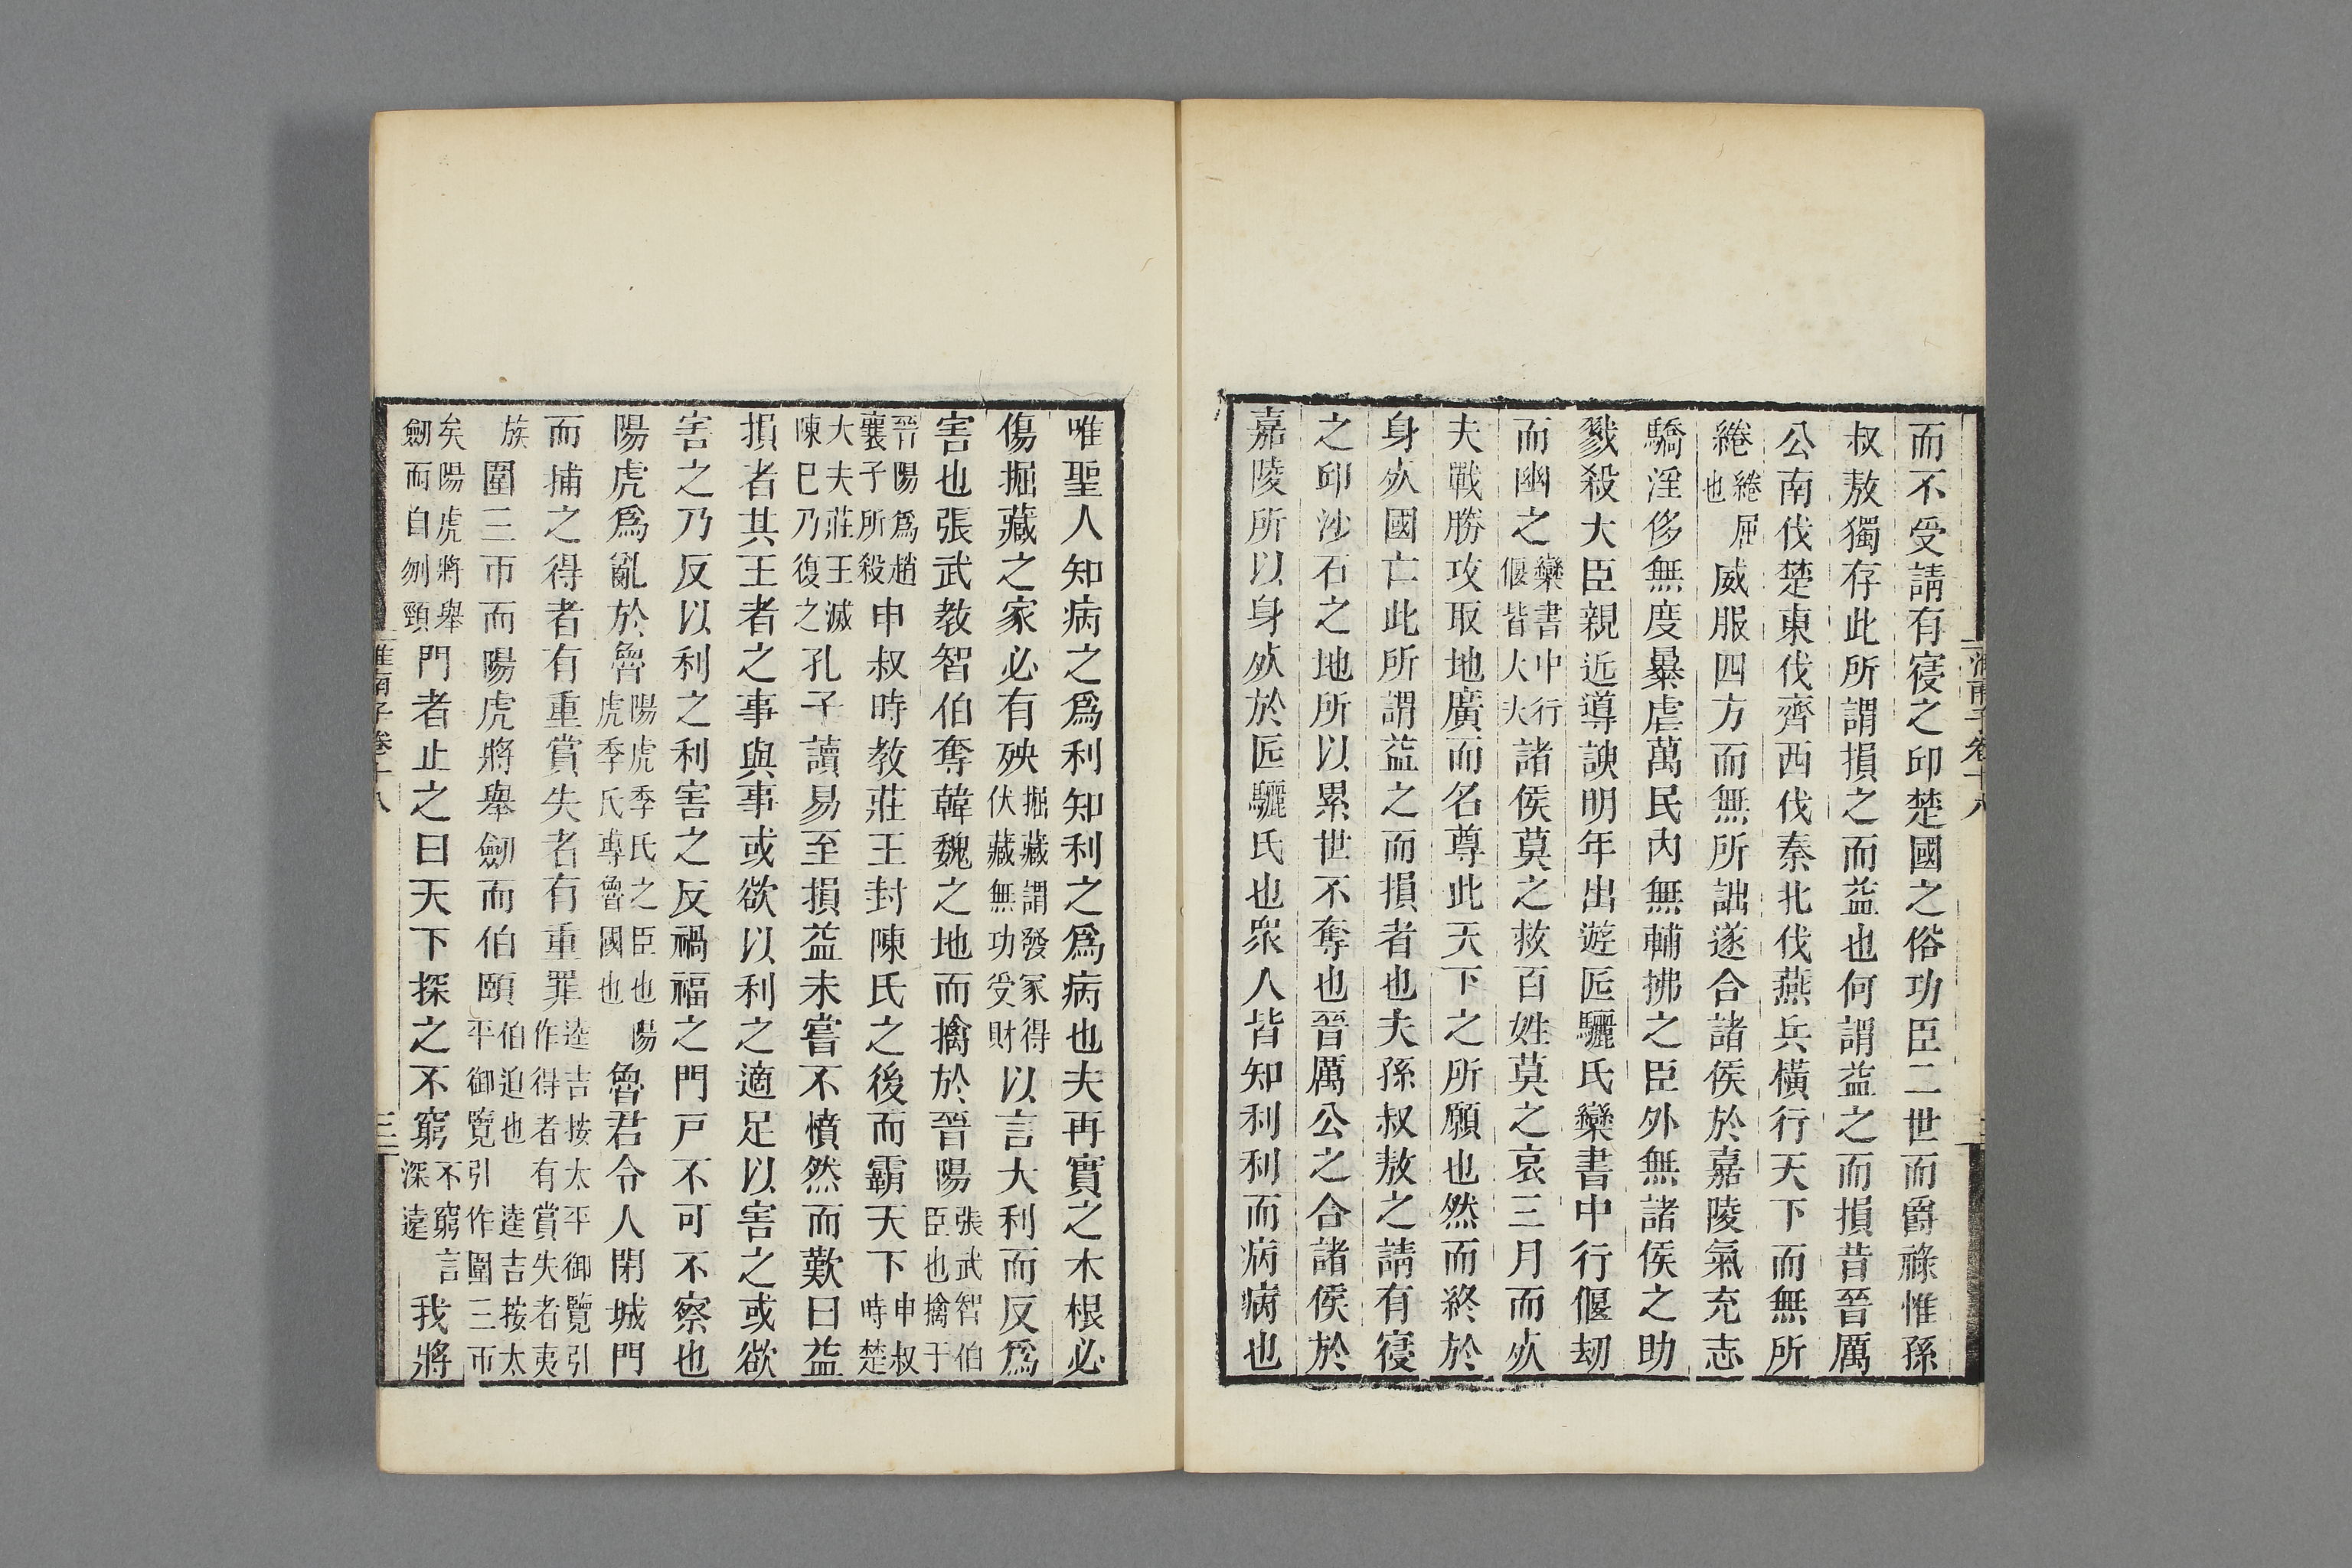 而不受請有寑之邱楚國之俗功臣二世而爵祿惟孫
叔敖獨存此所謂損之而益也何謂益之而損昔晉厲
公南伐楚東伐齊西伐秦北伐燕兵橫行天下而無所
綣綣屈也威服四方而無所詘遂合諸侯於嘉陵氣充志
驕淫侈無度暴虐萬民內無輔拂之臣外無諸侯之助
戮殺大臣親近導諛明年出遊匠驪氏欒書中行偃劫
而幽之欒書中行偃皆大夫諸侯莫之救百姓莫之哀三月而㱙
夫戰勝攻取地廣而名尊此天下之所願也然而終於
身㱙國亡此所謂益之而損者也夫孫叔敖之請有寑
之邱沙石之地所以累世不奪也晉厲公之合諸侯於
嘉陵所以身㱙於匠驪氏也眾人皆知利利而病病也
唯聖人知病之爲利知利之爲病也夫再實之木根必
傷掘藏之家必有殃掘藏謂發冢得伏藏無功受財以言大利而反爲
害也張武教智伯奪韓魏之地而擒於晉陽張武智伯臣也擒于
晉陽爲趙襄子所殺申叔時教莊王封陳氏之後而霸天下申叔時楚
大夫莊王滅陳巳乃復之孔子讀易至損益未嘗不憤然而歎曰益
損者其王者之事與事或欲以利之適足以害之或欲
害之乃反以利之利害之反禍福之門戸不可不察也
陽虎爲亂於魯陽虎季氏之臣也陽虎季氏專魯國也魯君令人閉城門
而捕之得者有重賞失者有重罪逵吉按太平御覽引作得者有賞失者夷
族圍三帀而陽虎將舉劒而伯頤伯迫也逵吉按太平御覽引作圍三帀
矣陽虎將舉劒而自刎頸門者止之曰天下探之不窮不窮言深遠我將
淮南子卷十八
三